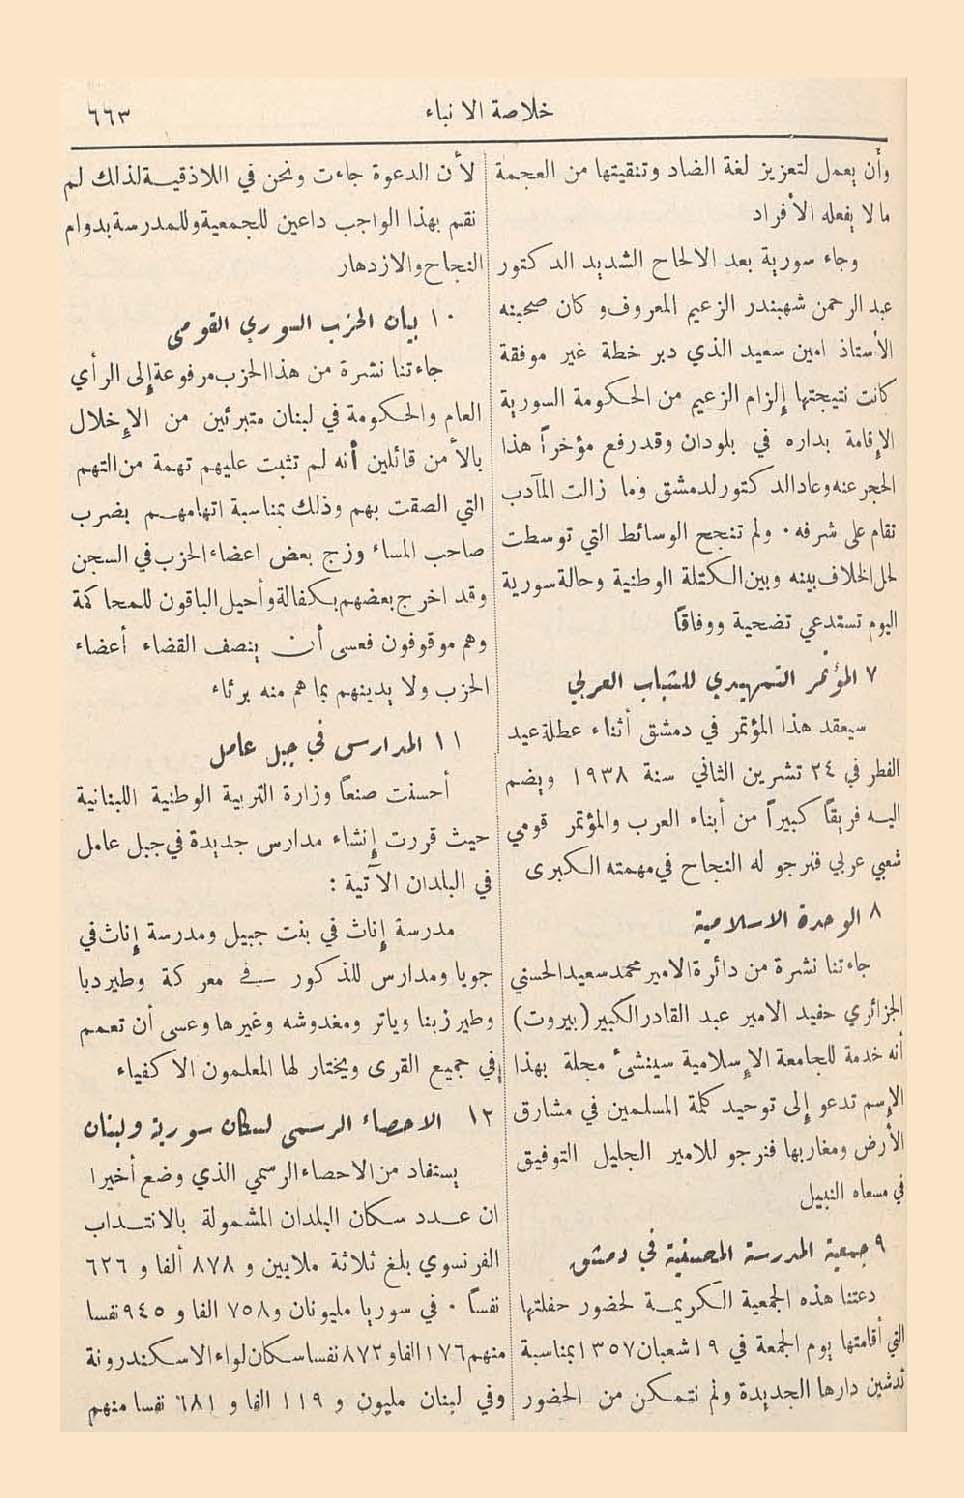 خلاصة الانباء
٦٦٣
وأن يعمل لتعزيز لغة الضاد وتنقيتها من العجمة
مالا يفعله الأفراد
وجاء سورية بعد الالحاح الشديد الدكتور
عبد الرحمن شهبندر الزعيم المعروف وكان صحبته
الأستاذ امين سعيد الذي دبر خطة غير موفقة
كانت نتيجتها إلزام الزعيم من الحكومة السورية
الإقامة بداره في بلودان وقد رفع مؤخراً هذا
الحجر عنه وعاد الدكتور لدمشق وما زالت المآدب
تقام على شرفه ٠ ولم تنجح الوسائط التي توسطت
لحل الخلاف بينه وبين الكتلة الوطنية وحالة سورية
اليوم تستدعي تضحية ووفاقاً
٧ المؤتمر التمهيدي للشباب العربي
سيعقد هذا المؤتمر في دمشق أثناء عطلة عيد
الفطر في ٢٤ تشرين الثاني سنة ١٩٣٨ ويضم
اليه فريقاً كبيراً من أبناء العرب والمؤتمر قومي
شعبي عربي فنرجو له النجاح في مهمته الكبرى
٨ الوحدة الاسلامية
جاءتنا نشرة من دائرة الامير محمد سعيد الحسني
الجزائري حفيد الامير عبد القادر الكبير (بيروت)
أنه خدمة للجامعة الإسلامية سينشئ مجلة بهذا
الإسم تدعو إلى توحيد كلمة المسلمين في مشارق
الأرض ومغاربها فنرجو للامير الجليل التوفيق
في مسعاه النبيل
٩ جمعية المدرسة المحسنية في دمشق
دعتنا هذه الجمعية الكريمة لحضور حفلتها
التي أقامتها يوم الجمعة في ١٩ شعبان ١٣٥٧ بمناسبة
تدشين دارها الجديدة ولم نتمكن من الحضور
لأن الدعوة جاءت ونحن في اللاذقية لذلك لم
نقم بهذا الواجب داعين للجمعية وللمدرسة بدوام
النجاح والازدهار
١٠ بيان الحزب السوري القومي
جاءتنا نشرة من هذا الحزب مرفوعة إلى الرأي
العام والحكومة في لبنان متبرئين من الإخلال
بالأمن قائلين أنه لم تثبت عليهم تهمة من التهم
التي الصقت بهم وذلك بمناسبة اتهامهم بضرب
صاحب المساء وزج بعض اعضاء الحزب في السجن
وقد اخرج بعضهم بكفالة وأحيل الباقون للمحاكمة
وهم موقوفون فعسى أن ينصف القضاء أعضاء
الحزب ولا يدينهم بما هم منه برئاء
١١ المدارس في جبل عامل
أحسنت صنعاً وزارة التربية الوطنية اللبنانية
حيث قررت إنشاء مدارس جديدة في جبل عامل
في البلدان الآتية :
مدرسة إناث في بنت جبيل ومدرسة إناث في
جويا ومدارس للذكور في معركة وطيردبا
وطير زبنا وياتر ومغدوشه وغيرها وعسى أن تعمم
في جميع القرى ويختار لها المعلمون الاكفياء
١٢ الاحصاء الرسمي لسكان سورية ولبنان
يستفاد من الاحصاء الرسمي الذي وضع أخيرا
ان عدد سكان البلدان المشمولة بالانتداب
الفرنسوي بلغ ثلاثة ملايين و ٨٧٨ ألفا و ٦٢٦
نفساً ٠ في سوريا مليونان و ٧٥٨ الفا و ٩٤٥ نفسا
منهم ١٧٦ الفا و ٨٧٢ نفسا سكان لواء الاسكندرونة
وفي لبنان مليون و ١١٩ الفا و ٦٨١ نفسا منهم